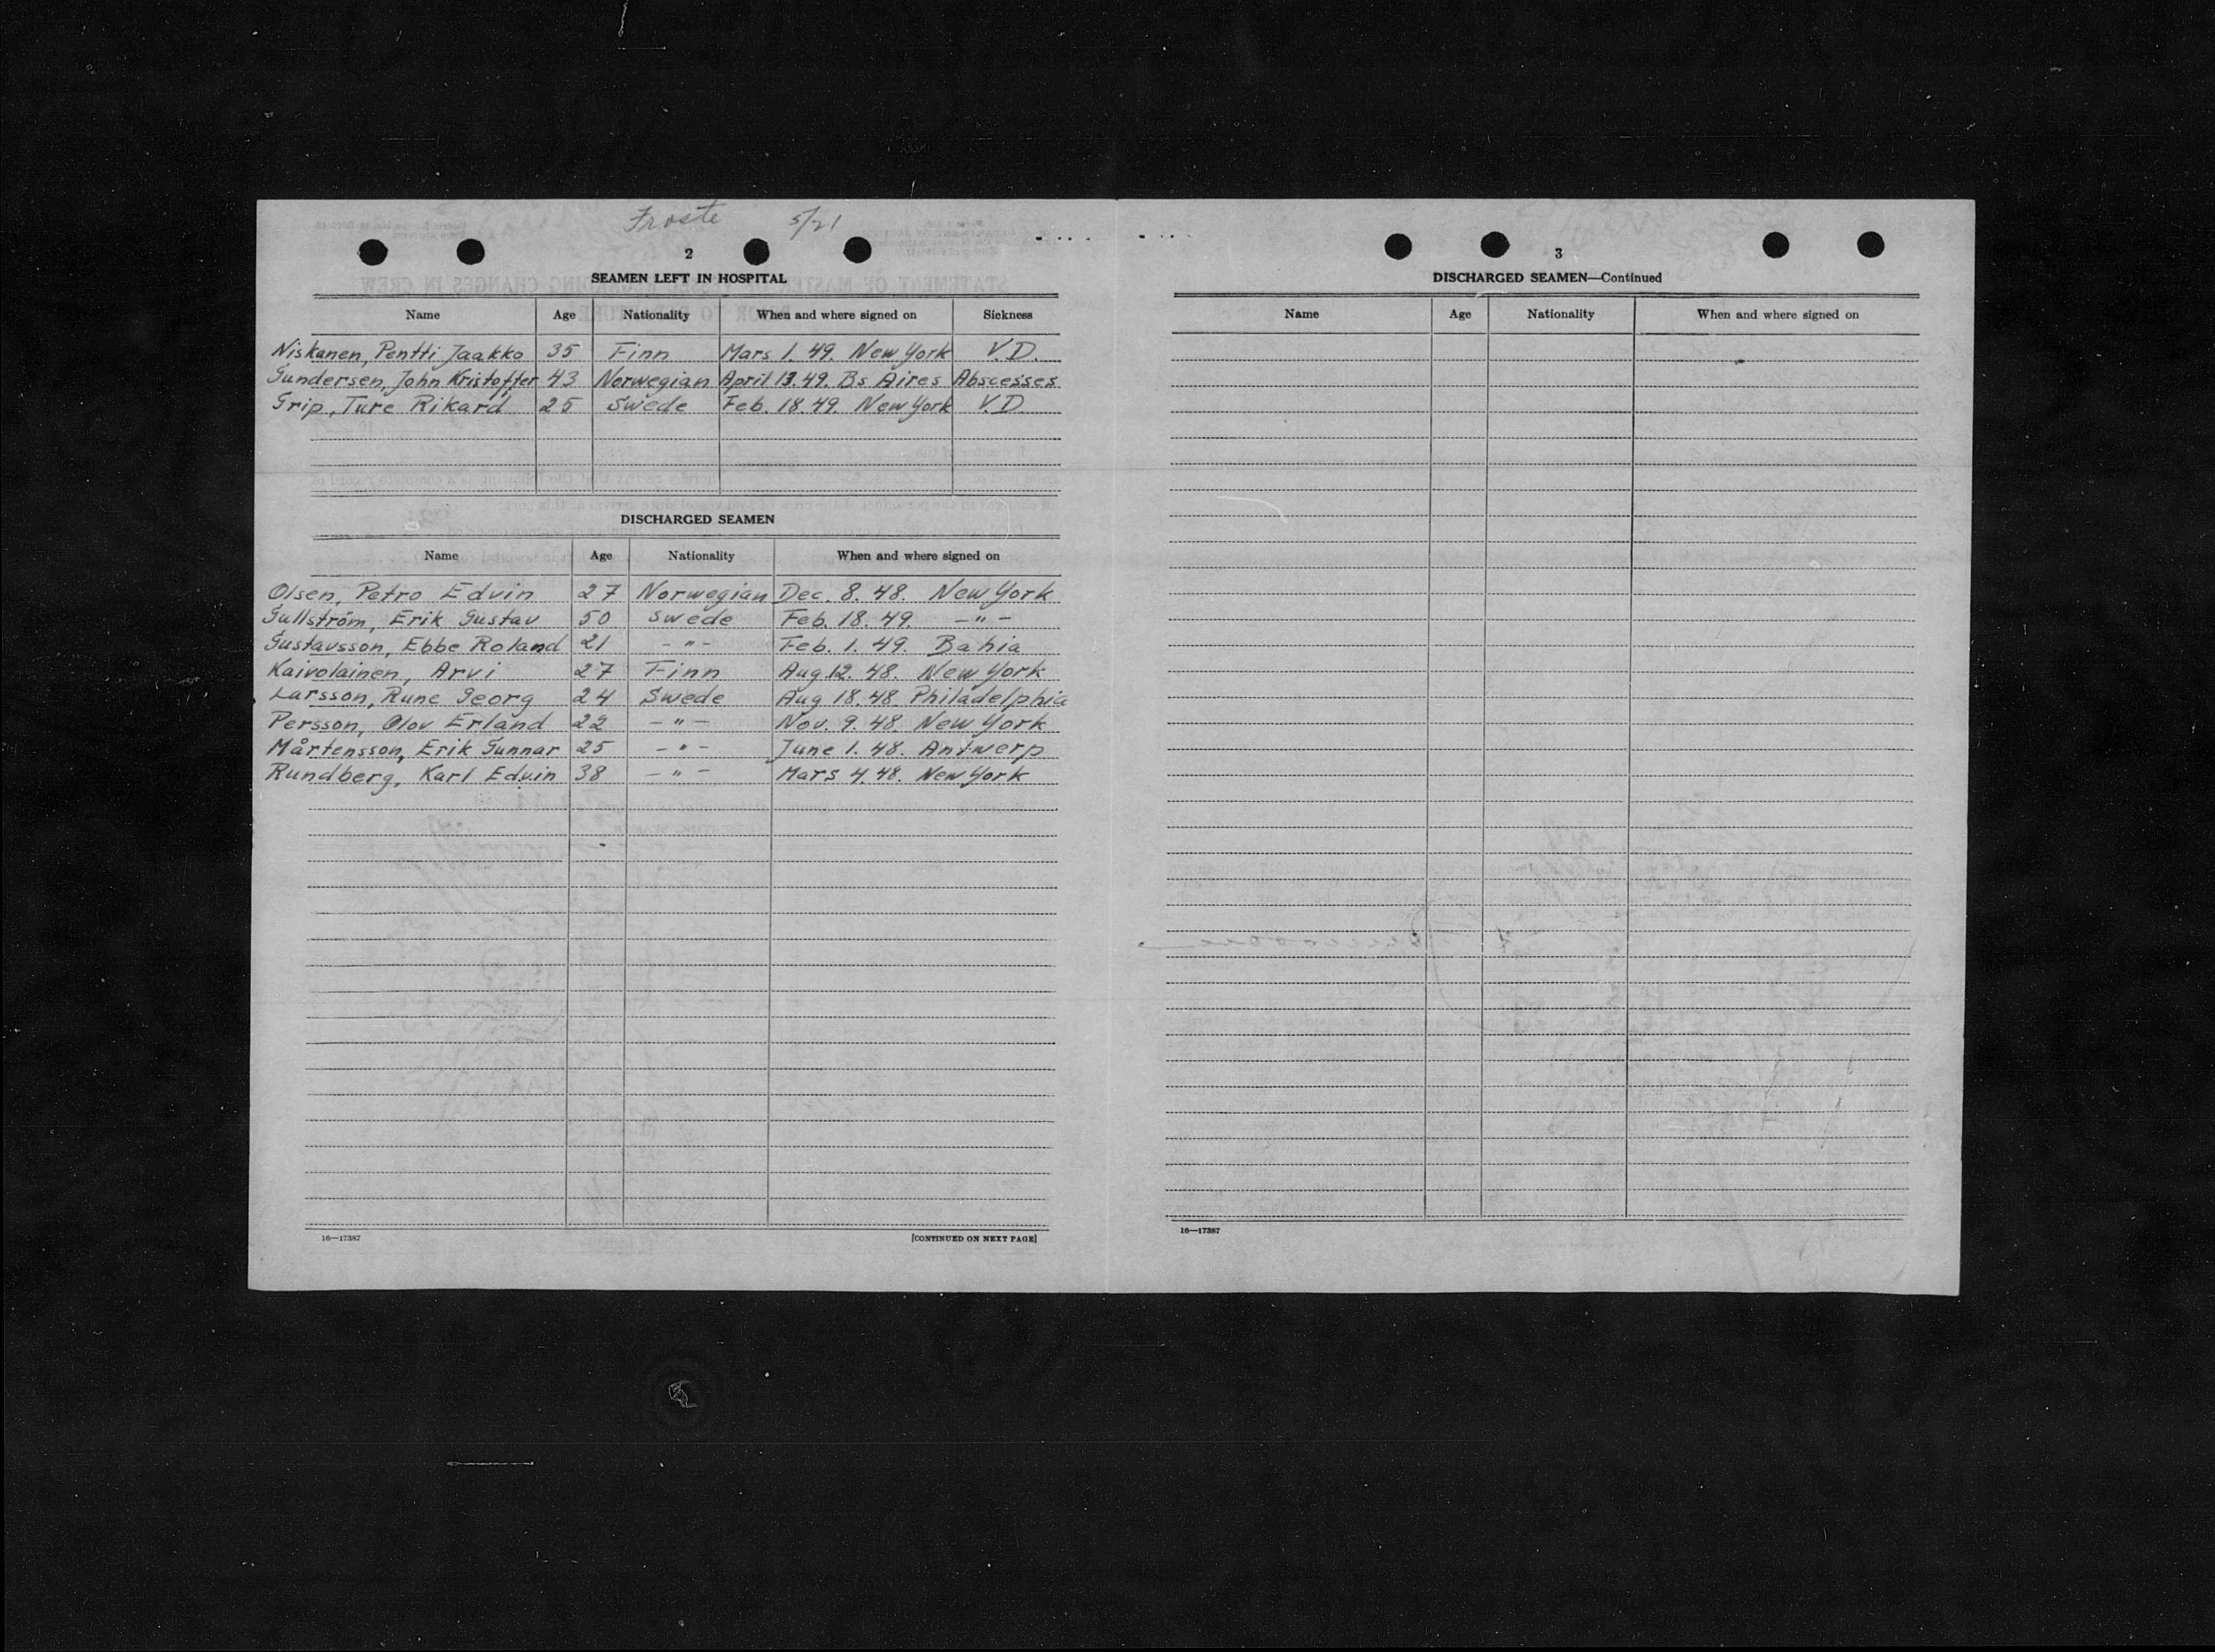 Froste 5/21
2
SEAMEN LEFT IN HOSPITAL
Name Age Nationality When and where signed on Sickness
Niskanen, Pentti Jaakko 35 Finn Mars 1. 49. New York V.D.
Gundersen, John Kristoffer 43 Norwegian April 13. 49. Bs Aires Abscesses.
Grip, Ture Rikard 25 Swede Feb. 18. 49. New York V.D.
DISCHARGED SEAMEN
Name Age Nationality When and where signed on
Olsen, Petro Edvin 27 Norwegian Dec. 8. 48. New York
Gullström, Erik Gustav 50 Swede Feb. 18. 49. -"-
Gustavsson, Ebbe Roland 21 -"- Feb. 1. 49. Bahia
Kaivolainen, Arvi 27 Finn Aug. 12. 48. New York
Larsson, Rune Georg 24 Swede Aug 18. 48. Philadelphia
Persson, Olov Erland 22 -"- Nov. 9. 48. New York
Mårtensson, Erik Gunnar 25 -"- June 1. 48. Antwerp
Rundberg, Karl Edvin 38 -"- Mars 4. 48. New York
16—17387 [CONTINUED ON NEXT PAGE]
3
DISCHARGED SEAMEN—Continued
Name Age Nationality When and where signed on
16—17387